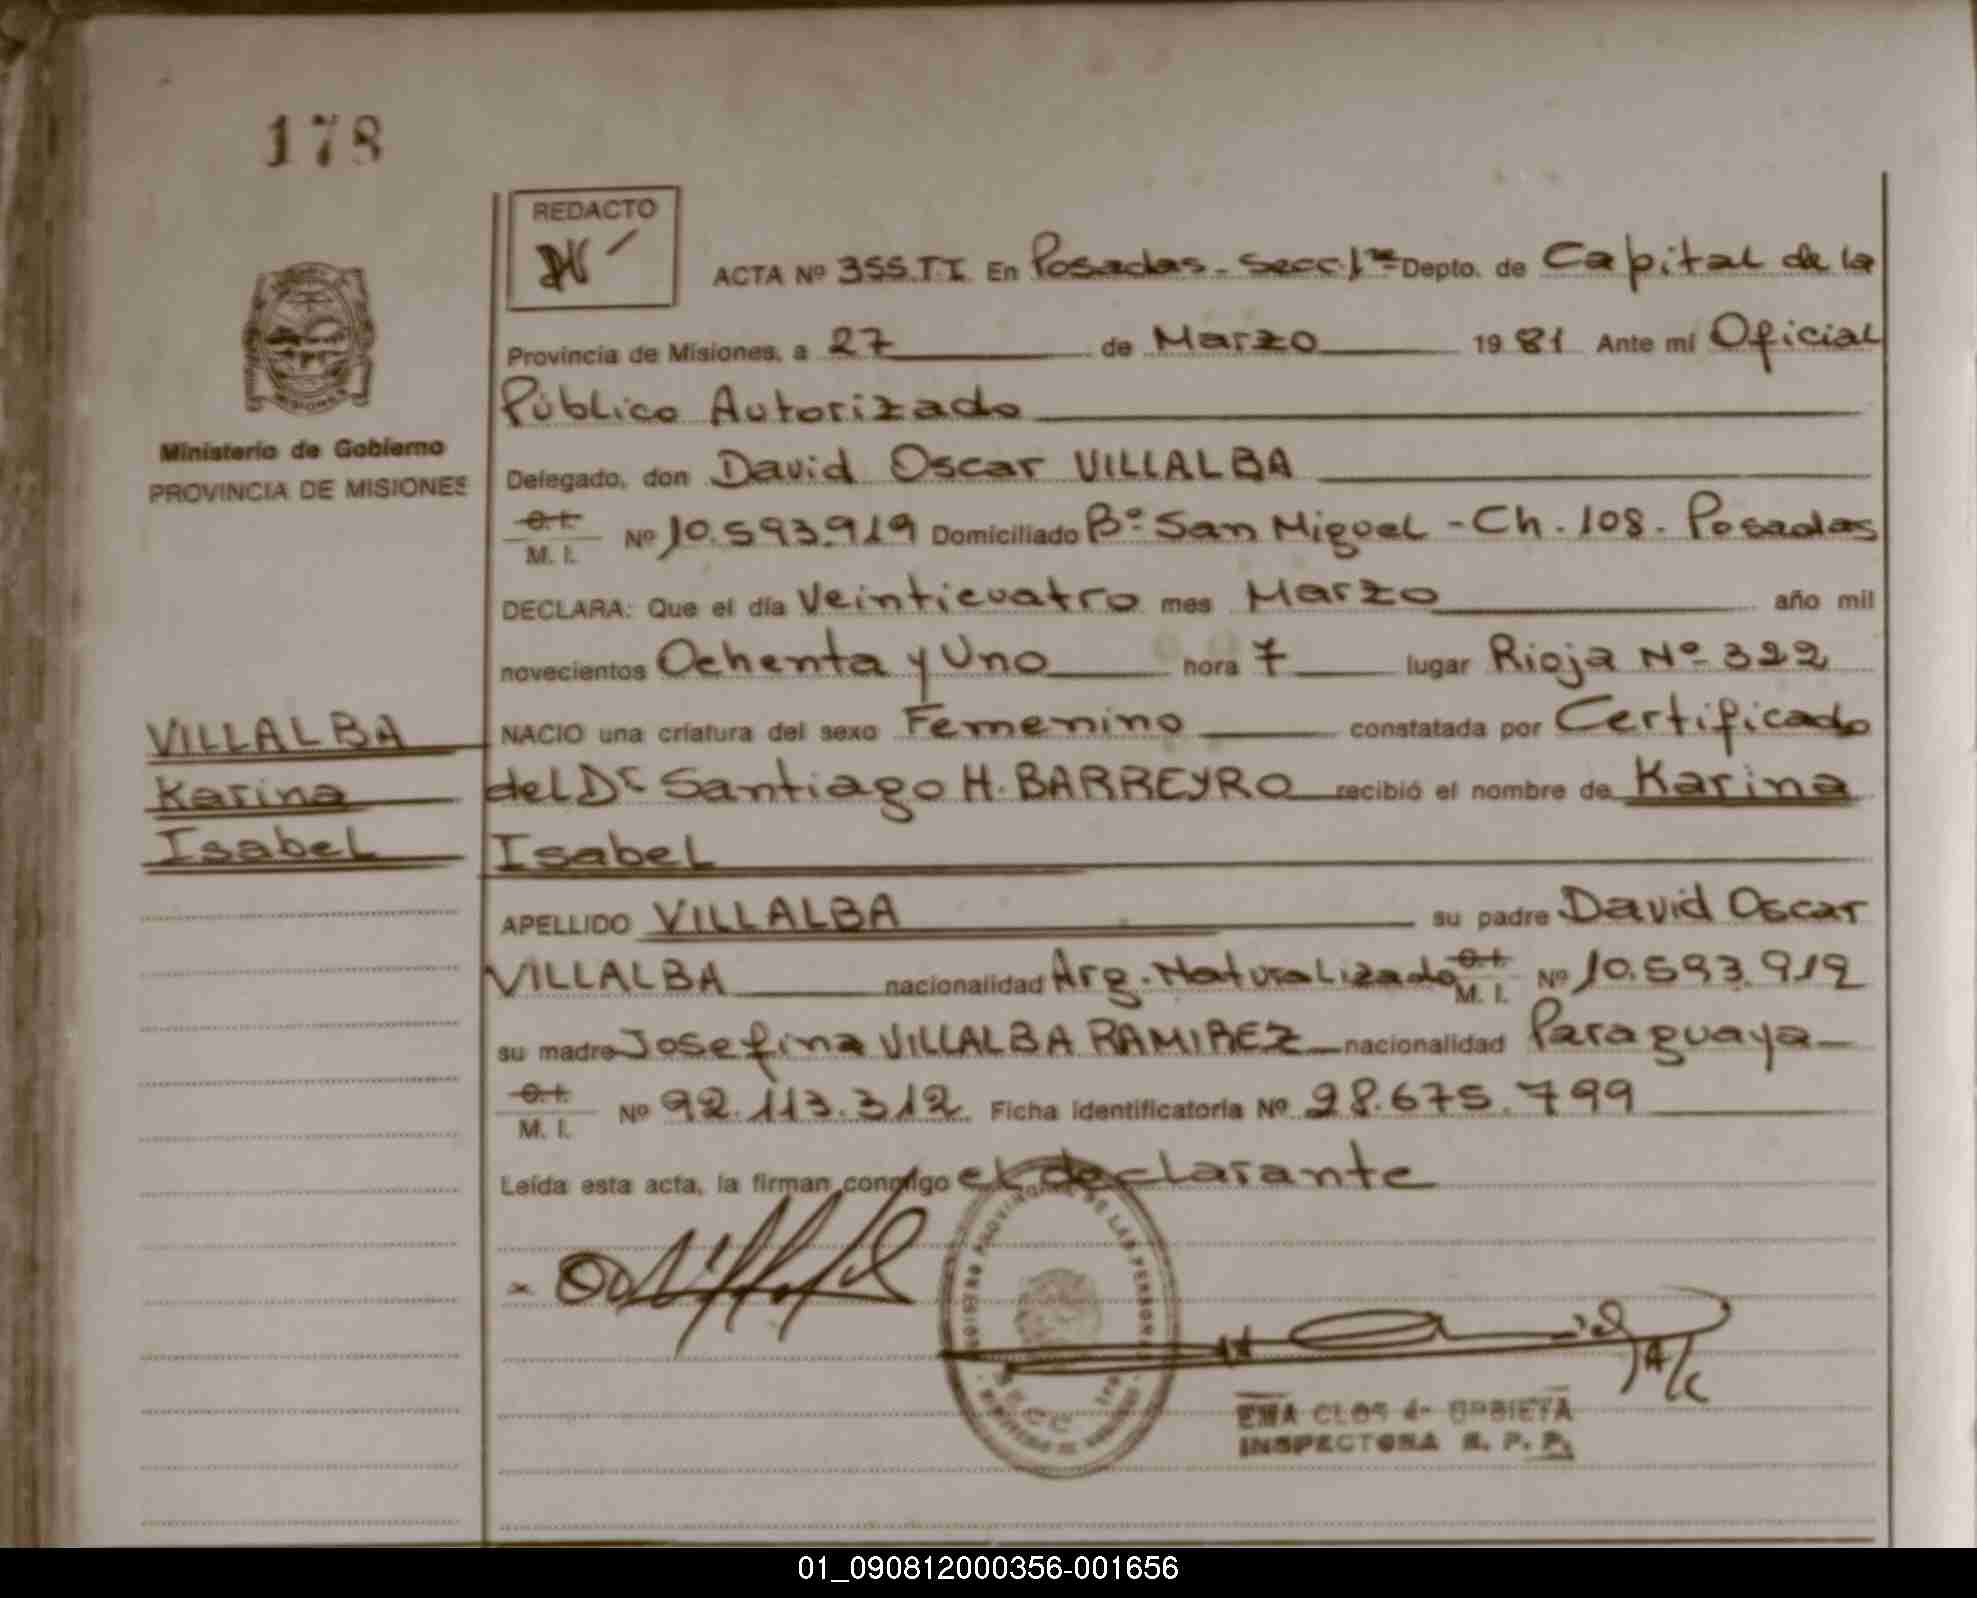 178
REDACTO
ACTA Nº 355.T.I. En Posadas - Secc. 1ra - Depto. de Capital de la
Provincia de Misiones, a 27 de Marzo 1981 Ante mí Oficial
Público Autorizado
Ministerio de Gobierno
PROVINCIA DE MISIONES
Delegado, don David Oscar VILLALBA
C.I.
M. I. Nº 10.593.919 Domiciliado Bº San Miguel - Ch. 108 - Posadas
DECLARA: Que el día Veinticuatro mes Marzo año mil
novecientos Ochenta y Uno hora 7 lugar Rioja Nº 322
VILLALBA
Karina
Isabel
NACIO una criatura del sexo Femenino constatada por Certificado
del Dr Santiago H. BARREYRO recibió el nombre de Karina
Isabel
APELLIDO VILLALBA su padre David Oscar
VILLALBA nacionalidad Arg. Naturalizado C.I. M. I. Nº 10.593.919
su madre Josefina VILLALBA RAMIREZ nacionalidad Paraguaya
C.I.
M. I. Nº 92.113.312 Ficha identificatoria Nº 28.675.799
Leída esta acta, la firman conmigo el declarante
INSPECTORA R. P. P.
01_090812000356-001656